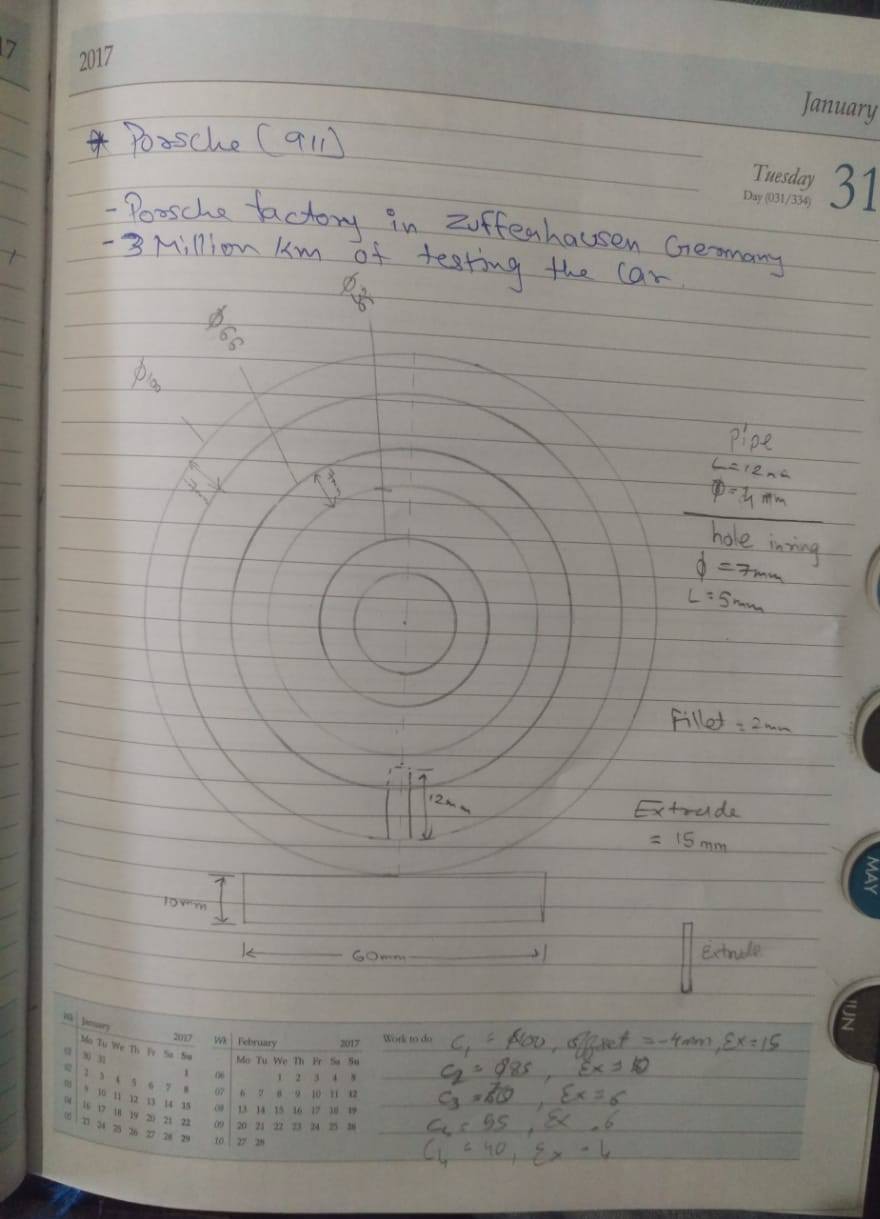 17
2017
January
Tuesday
31
Day (031/334)
* Porsche (911)
- Porsche factory in Zuffenhausen Germany
- 3 Million km of testing the car.
Φ66
Φ100
Pipe
L=12mm
Φ=4mm
hole in ring
ϕ=7mm
L=5mm
Fillet = 2mm
12mm
Extrude
= 15mm
10mm
60mm
Extrude
MAY
JUN
Wk January 2017
Mo Tu We Th Fr Sa Su
01 30 31 1
02 2 3 4 5 6 7 8
03 9 10 11 12 13 14 15
04 16 17 18 19 20 21 22
05 23 24 25 26 27 28 29
Wk February 2017
Mo Tu We Th Fr Sa Su
06 1 2 3 4 5
07 6 7 8 9 10 11 12
08 13 14 15 16 17 18 19
09 20 21 22 23 24 25 26
10 27 28
Work to do
C1 = ϕ100, offset = -4mm, Ex=15
C2 = ϕ85, Ex=10
C3 = 70, Ex=6
= 55, Ex 6
C4 = 40, Ex - 4